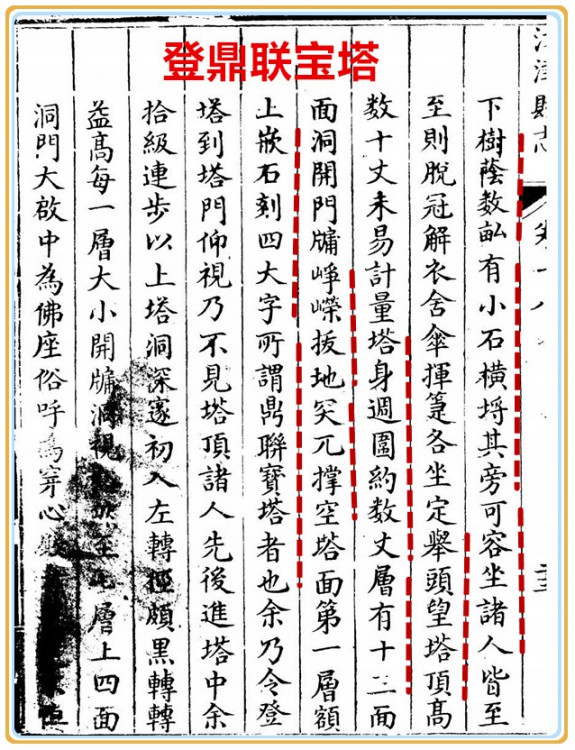 登鼎联宝塔
下樹蔭数畝有小石横埓其旁可容坐諸人皆至
至則脫冠解衣舍傘揮箑各坐定舉頭望塔頂高
数十丈未易計量塔身週圍約数丈層有十二面
面洞開門牖崢嶸拔地突兀撑空塔面第一層額
上嵌石刻四大字所謂鼎聯寳塔者也余乃令登
塔到塔門仰視乃不見塔頂諸人先後進塔中余
拾級連步以上塔洞深邃初入左轉徑頗黑轉轉
益髙每一層大小開牖洞視至層上四面
洞門大啟中為佛座俗呼為穿心